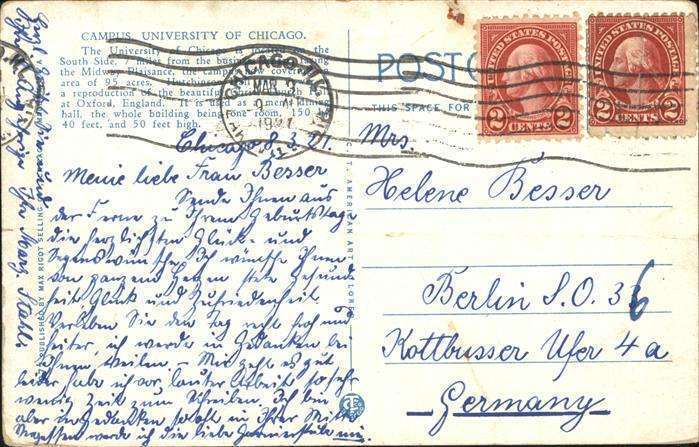 CAMPUS, UNIVERSITY OF CHICAGO.
The University of Chicago is located on the
South Side, 7 miles from the business
the Midway Plaisance, the campus now covers
area of 95 acres. Hutchinson
a reproduction of the beautiful
at Oxford, England. It is used as a
hall, the whole building being one room, 150
40 feet, and 50 feet high.
PUBLISHED BY MAX RIGOT SELLING
AMERICAN ART COLORED
POST
THIS SPACE FOR
CHICAGO, ILL.
MAR
9
192
UNITED STATES POSTAGE
2 CENTS 2
UNITED STATES POSTAGE
2 CENTS 2
Chicago 8.3.27.
Meine liebe Frau Besser
Sende Ihnen aus
der Ferne zu Ihrem Geburtstage
die herzlichsten Glück- und
Segenswünsche. Ich wünsche Ihnen
von ganzem Herzen stets Gesund-
heit Glück und Zufriedenheit
Verleben Sie den Tag recht froh und
heiter, ich werde in Gedanken bei
Ihnen weilen. - Mir geht es gut
leider habe ich vor lauter Arbeit so sehr
wenig Zeit zum Schreiben. Ich bin
aber in Gedanken sooft in Ihrer Mitte
werde ich die liebe nie.
Ihre
Mrs.
Helene Besser
Berlin S.O. 36
Kottbusser Ufer 4a
Germany